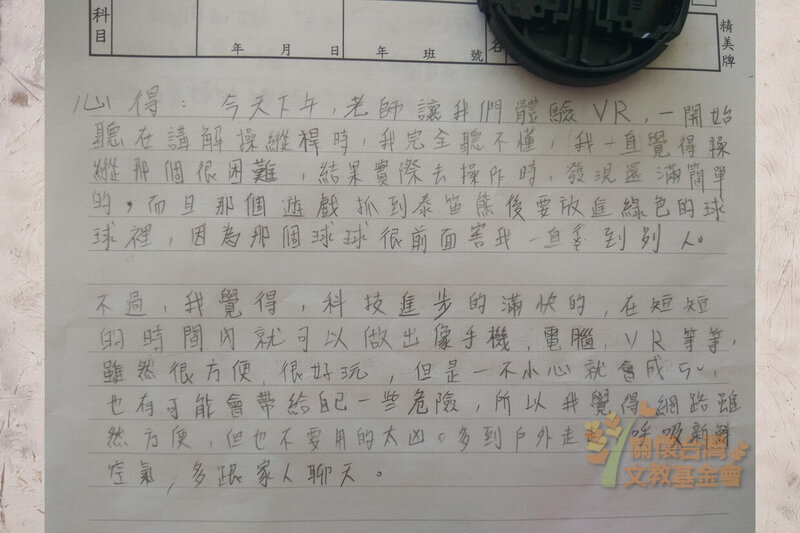 科目
年 月 日
年 班 號
名
精美牌
心得：今天下午，老師讓我們體驗VR，一開始
聽在講解操縱桿時，我完全聽不懂，我一直覺得操
縱那個很困難，結果實際去操作時，發現還滿簡單
的，而且那個遊戲抓到泰笛熊後要放進綠色的球
球裡，因為那個球球很前面害我一直到別人。
不過，我覺得，科技進步的滿快的，在短短
的時間內就可以做出像手機，電腦，VR等等，
雖然很方便，很好玩，但是一不小心就會成，
也有可能會帶給自己一些危險，所以我覺得網路雖
然方便，但也不要用的太凶。多到戶外走走 呼吸新鮮
空氣，多跟家人聊天。
關懷台灣
文教基金會